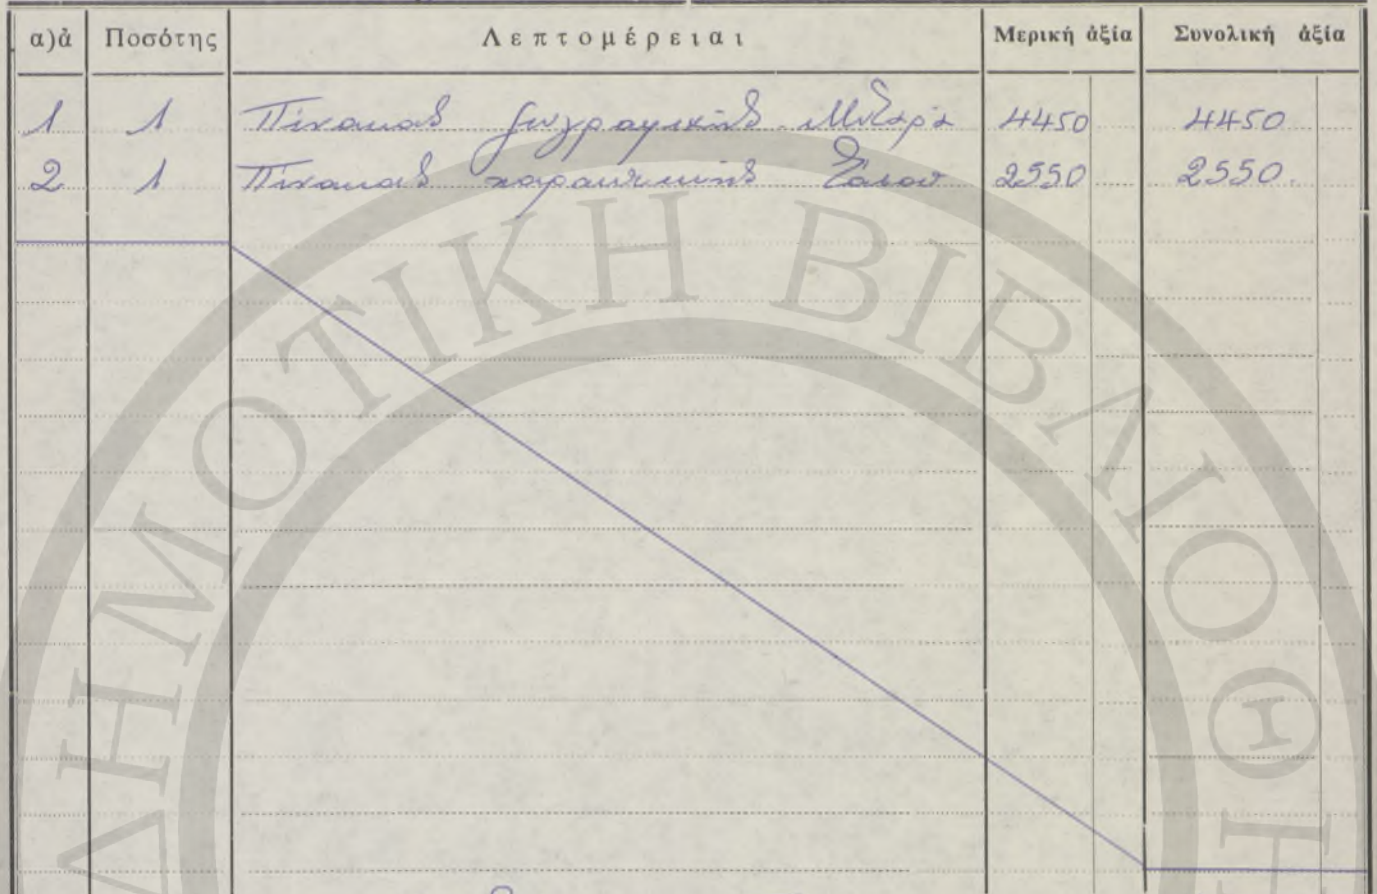 α)ἀ Ποσότης Λεπτομέρειαι Μερική ἀξία Συνολική ἀξία
1 1 Πίνακας ζωγραφικής Μυταρά 4450 4450
2 1 Πίνακας χαρακτικής 2550 2550
ΔΗΜΟΤΙΚΗ ΒΙΒΛΙΟΘΗ